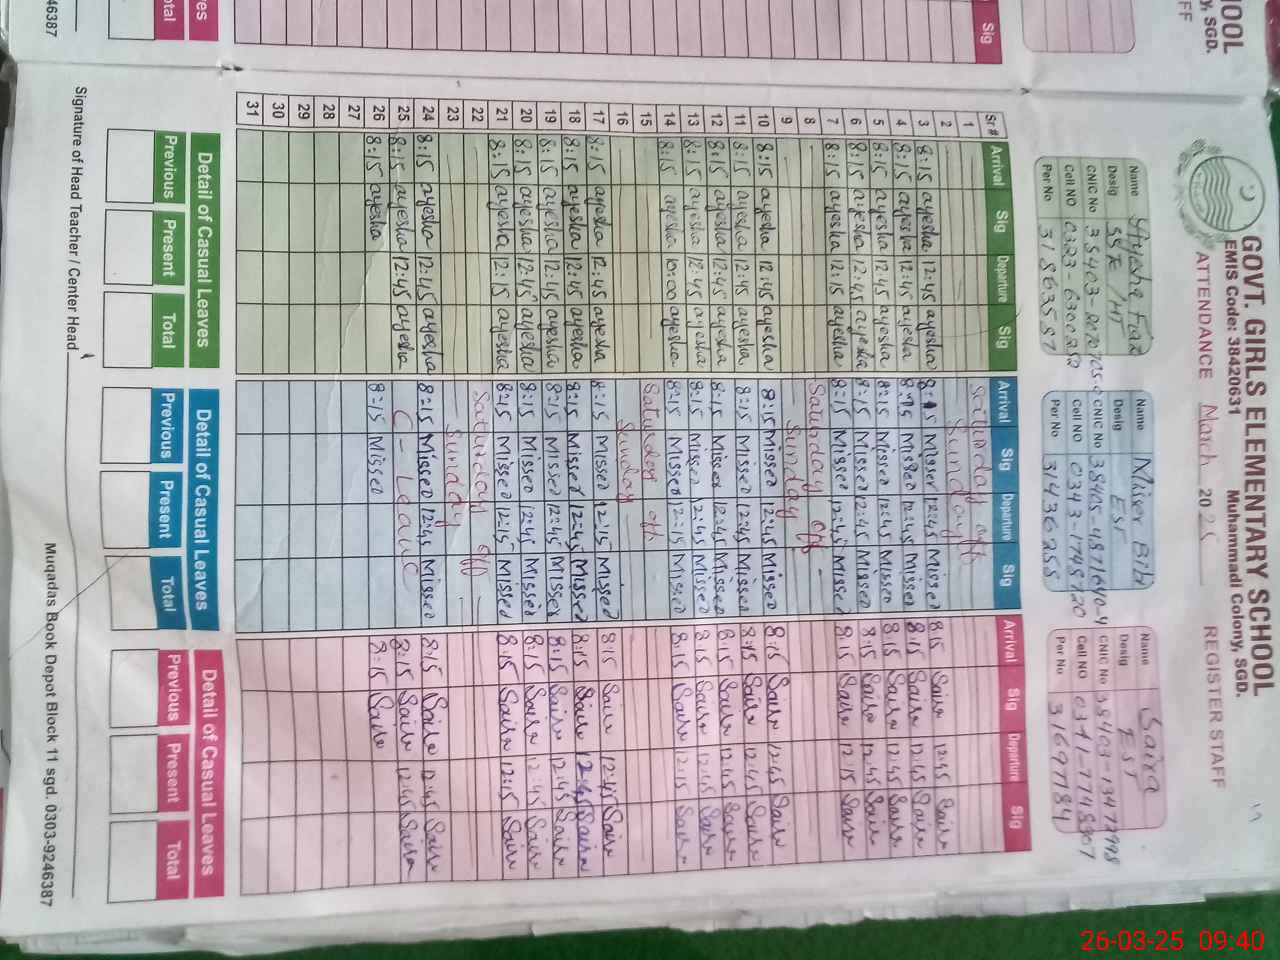 GOVT. GIRLS ELEMENTARY SCHOOL
EMIS Code: 38420631 Muhammadi Colony, SGD.
ATTENDANCE March 2025 REGISTER STAFF
Name Ayesha Faiz
Desig SSTE / HT
CNIC No
Cell No 0323-6300252
Per No 31863587
Name Misser Bibi
Desig EST
CNIC No 38405-4871640-4
Cell NO 0343-1748920
Per No 31436255
Name Saira
Desig EST
CNIC No
Cell NO 0341-7748307
Per No 31697184
Sr# Arrival Sig Departure Sig Arrival Sig Departure Sig Arrival Sig Departure Sig
1 Saturday off
2 Sunday
3 8:15 ayesha 12:45 ayesha 8:15 Misser 12:45 Misser 8:15 Saira 12:45 Saira
4 8:15 ayesha 12:45 ayesha 8:15 Misser 12:45 Misser 8:15 Saira 12:45 Saira
5 8:15 ayesha 12:45 ayesha 8:15 Misser 12:45 Misser 8:15 Saira 12:45 Saira
6 8:15 ayesha 12:45 ayesha 8:15 Misser 12:45 Misser 8:15 Saira 12:45 Saira
7 8:15 ayesha 12:15 ayesha 8:15 Misser 12:45 Misser 8:15 Saira 12:15 Saira
8 Saturday off
9 Sunday
10 8:15 ayesha 12:45 ayesha 8:15 Misser 12:45 Misser 8:15 Saira 12:45 Saira
11 8:15 ayesha 12:45 ayesha 8:15 Misser 12:45 Misser 8:15 Saira 12:45 Saira
12 8:15 ayesha 12:45 ayesha 8:15 Misser 12:45 Misser 8:15 Saira 12:45 Saira
13 8:15 ayesha 12:45 ayesha 8:15 Misser 12:45 Misser 8:15 Saira 12:45 Saira
14 8:15 ayesha 10:00 ayesha 8:15 Misser 12:15 Misser 8:15 Saira 12:15 Saira
15 Saturday off
16 Sunday
17 8:15 ayesha 12:45 ayesha 8:15 Misser 12:15 Misser 8:15 Saira 12:45 Saira
18 8:15 ayesha 12:45 ayesha 8:15 Misser 12:45 Misser 8:15 Saira 12:45 Saira
19 8:15 ayesha 12:45 ayesha 8:15 Misser 12:45 Misser 8:15 Saira 12:45 Saira
20 8:15 ayesha 12:45 ayesha 8:15 Misser 12:45 Misser 8:15 Saira 12:45 Saira
21 8:15 ayesha 12:15 ayesha 8:15 Misser 12:15 Misser 8:15 Saira 12:15 Saira
22 Saturday off
23 Sunday
24 8:15 ayesha 12:45 ayesha 8:15 Misser 12:45 Misser 8:15 Saira 12:45 Saira
25 8:15 ayesha 12:45 ayesha C-Leave 8:15 Saira 12:45 Saira
26 8:15 ayesha 8:15 Misser 8:15 Saira
27
28
29
30
31
Detail of Casual Leaves Detail of Casual Leaves Detail of Casual Leaves
Previous Present Total Previous Present Total Previous Present Total
Signature of Head Teacher / Center Head
Muqadas Book Depot Block 11 sgd. 0303-9246387
Sig
HOOL
y, SGD.
FF
otal
ves
46387
26-03-25 09:40